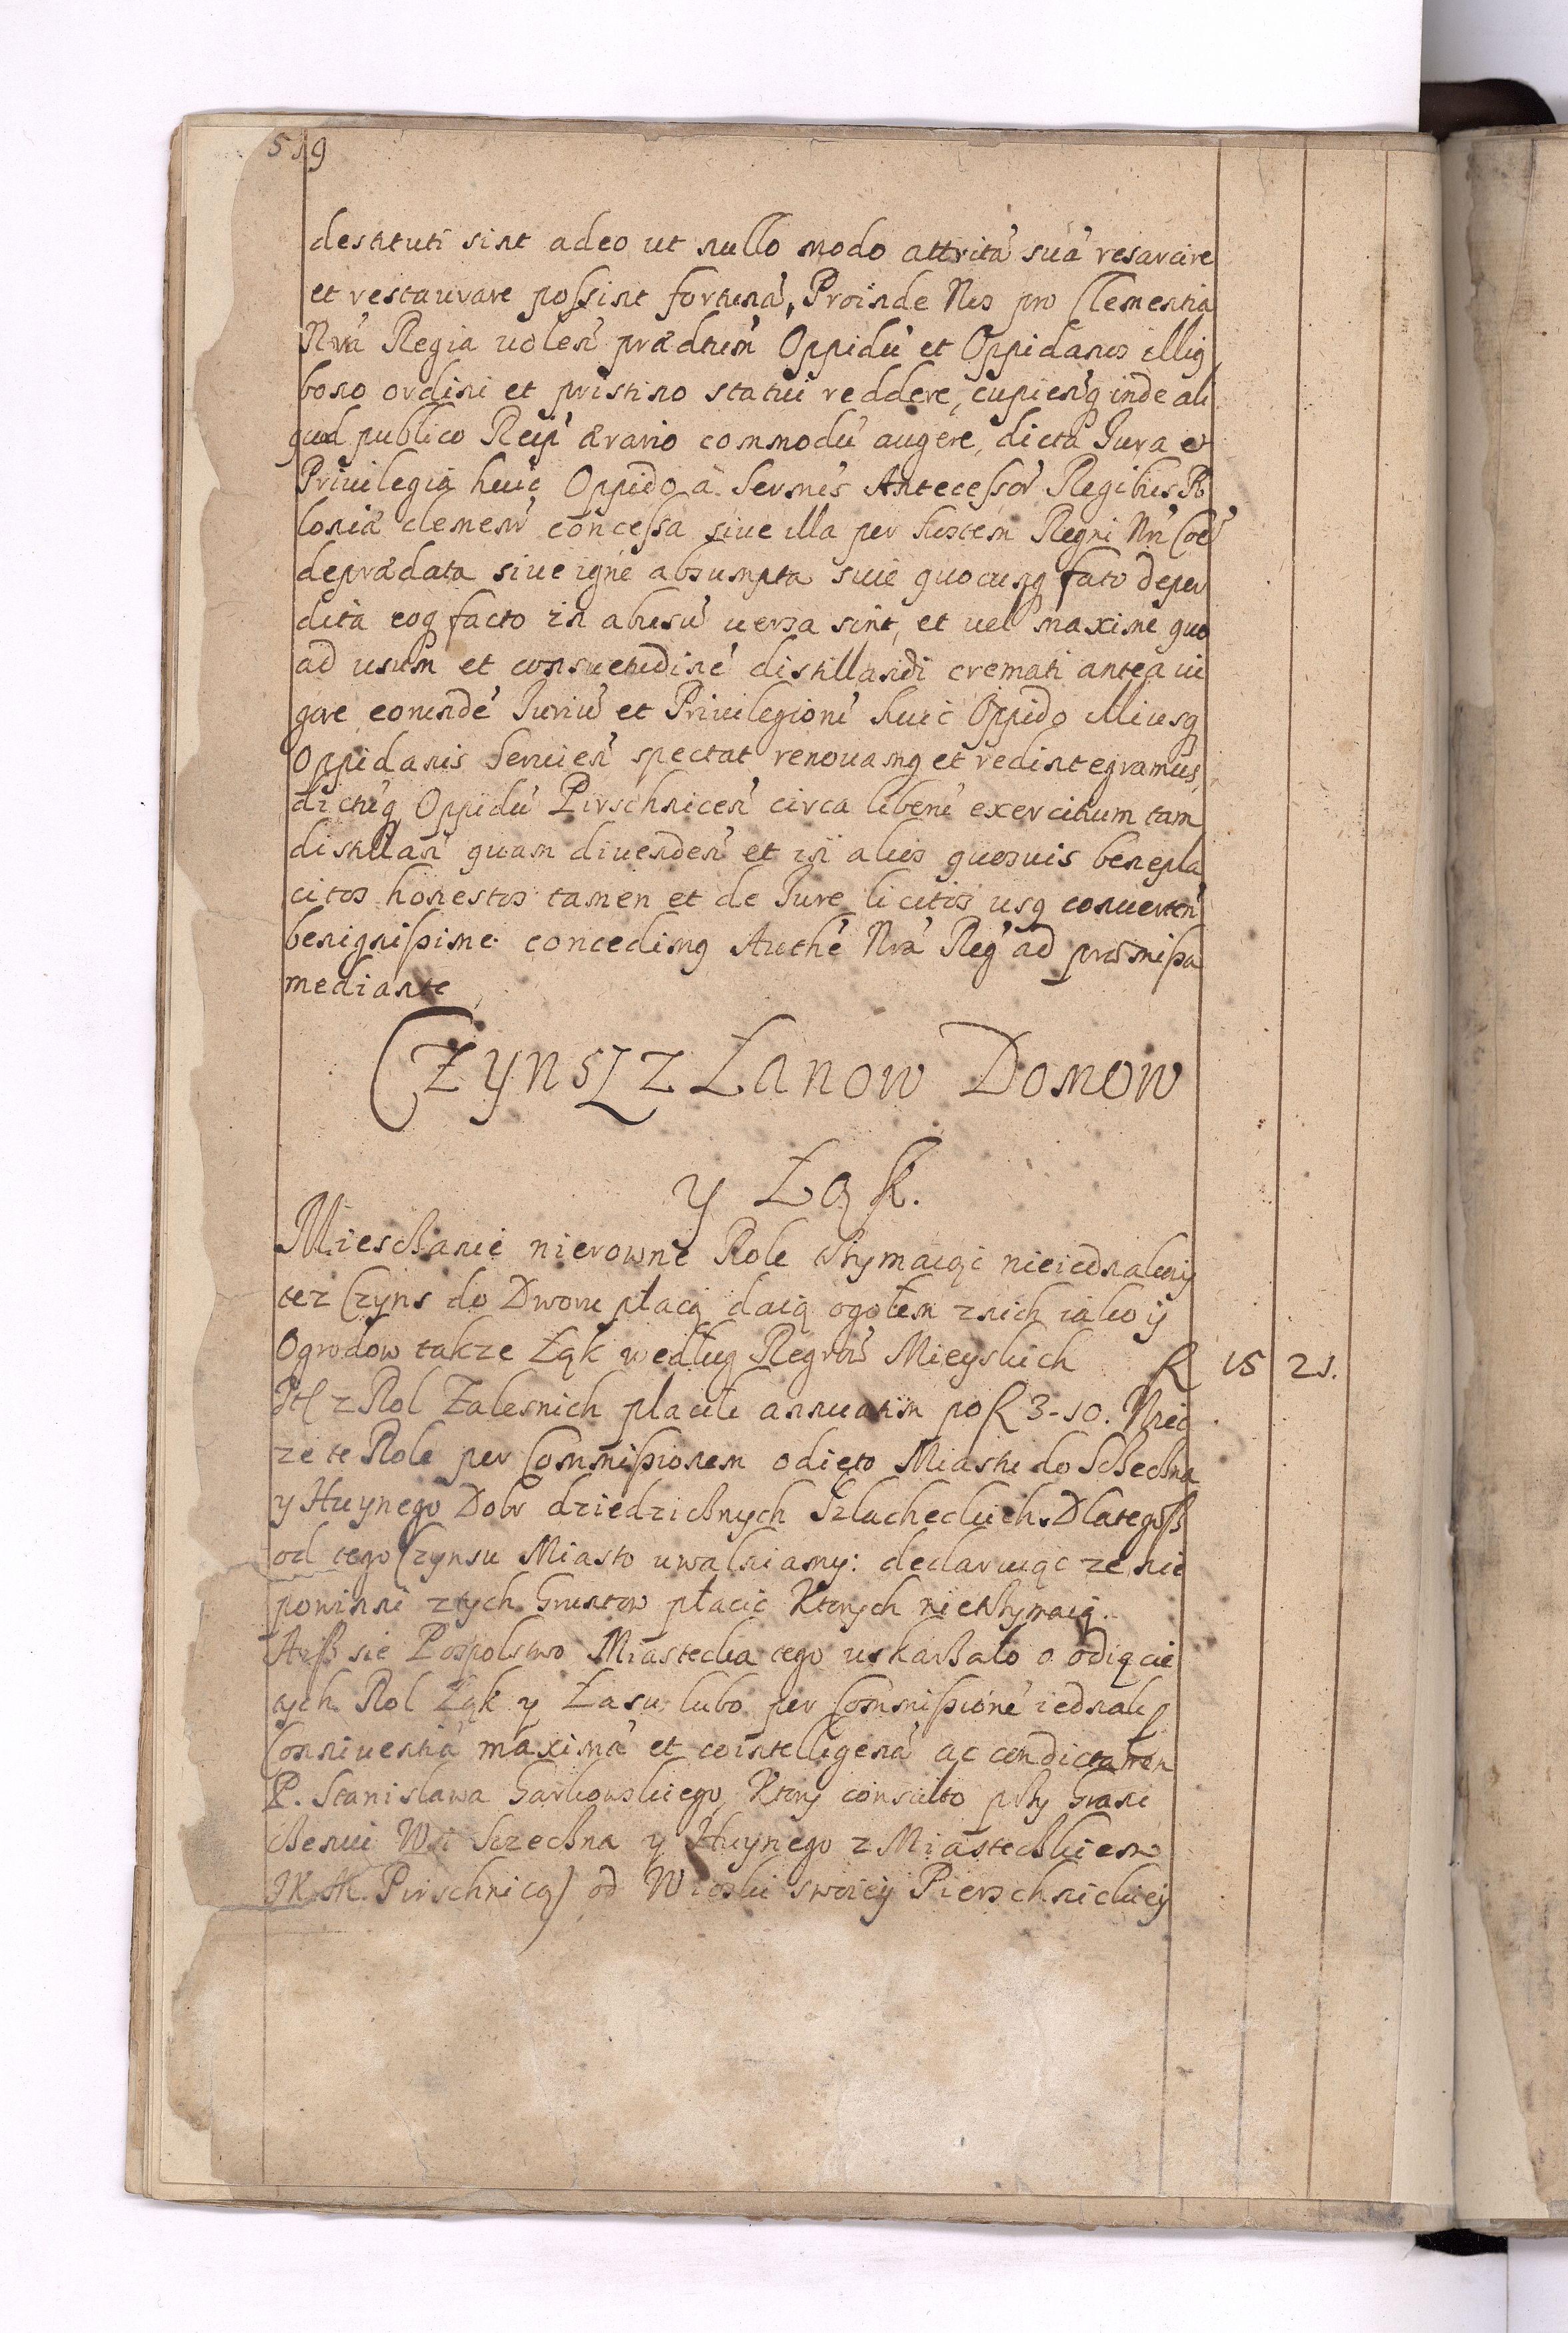 519
destituti sint adeo ut nullo modo attrita sua resarcire
et restaurare possint fortuna, Proinde Nos pro Clementia
Nra Regia uolen prædtum Oppidu et Oppidanos illiq
bono ordini et pristino statui reddere, cupienq inde ali
quod publico Reip ærario commodu augere, dicta Jura et
Priuilegia huic Oppido a Sermis Antecessor Regibus Po
loniæ clemenr concessa siue illa per hostem Regni Nri
deprædata siue igne absumpta siue quocunq fato deper
dita eoq facto in abusu uersa sint, et uel maxime quo
ad usum et consuetudine distillandi cremati antea ui
gore eorunde Juriu et Priuilegioru huic Oppido illiusq
Oppidanis Seruien spectat renouamq et redintegramus,
dictuq Oppidu Pirschnicen circa liberu exercitium tam
distillan quam diuenden et in alios quosuis benepla
citos honestos tamen et de Jure licitos usq conuerten
benignissime concedimq Authe Nra Reg ad præmissa
mediante
Czynsz z Łanow Domow
y Łąk.
Miesczanie nierowne Role trzymaiąc nieiednakny
tez Czyns do Dworu płacą daią ogołem znich iako y
Ogrodow takze Łąk według Regrow Mieyskich R 15 21.
Itt z Rol Zalesnich placili annuatim po R 3-10.
ze te Role per Commissionem odięto Miastu do Sczeczna
y Huynego Dobr dziedzicznych Szlacheckich. Dlategosz
od tego Czynsu Miasto uwalniamy: declaruiąc ze nie
powinni ztych Gruntow płacic Ktorych nietrzymaią.
Asz sie Pospolstwo Miastecka tego uskarzało o odięcie
tych Rol Łąk y Łasu lubo per Commissione iednak
Conniuentia maxima et cointelligena ac condictamen
P. Stanisława Garkowskiego, Ktory consulto przy Grani
czeniu Wsi Sczeczna y Huynego z Miasteczkiem
JK Mc. Pirschnicą) od Wioski swoiey Pierschnickiey